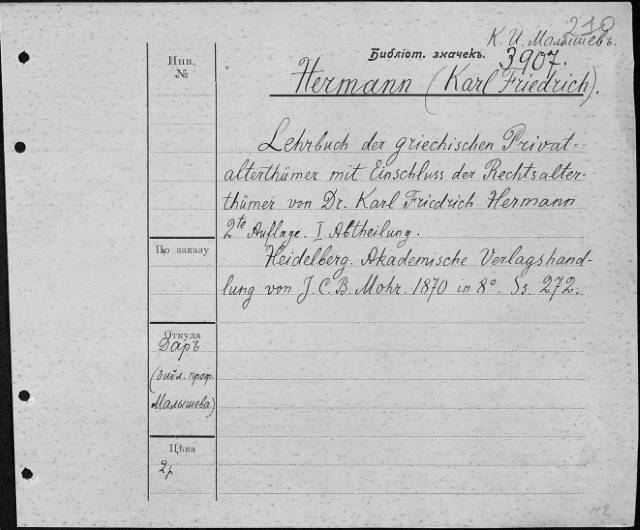 210
К. И. Малышевъ.
Библіот. значекъ. 3907.
Инв.
№
Hermann (Karl Friedrich).
Lehrbuch der griechischen Privat-
alterthümer mit Einschluss der Rechtsalter-
thümer von Dr. Karl Friedrich Hermann
2te Auflage. I Abtheilung.
По заказу
Heidelberg. Akademische Verlagshand-
lung von J. C. B. Mohr. 1870 in 8° Ss. 272.
Откуда
Даръ
(библ. проф.
Малышева)
Цѣна
2р